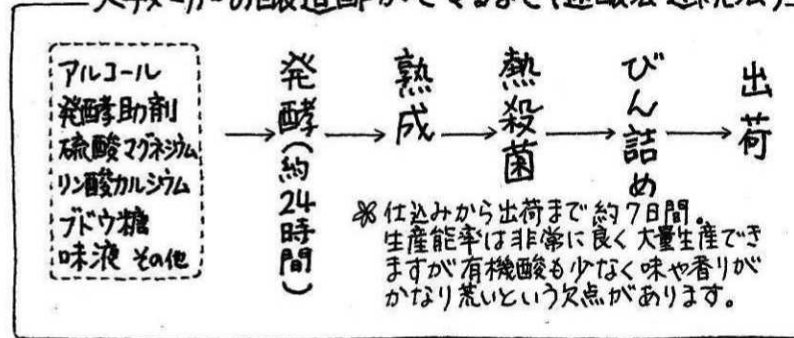 大手メーカーの醸造酢ができるまで(速醸法・連続法)
アルコール
発酵助剤
硫酸マグネシウム
リン酸カルシウム
ブドウ糖
味液 その他
発酵(約24時間)
熟成
熱殺菌
びん詰め
出荷
※仕込みから出荷まで約7日間。
生産能率は非常に良く大量生産でき
ますが有機酸も少なく味や香りが
かなり荒いという欠点があります。